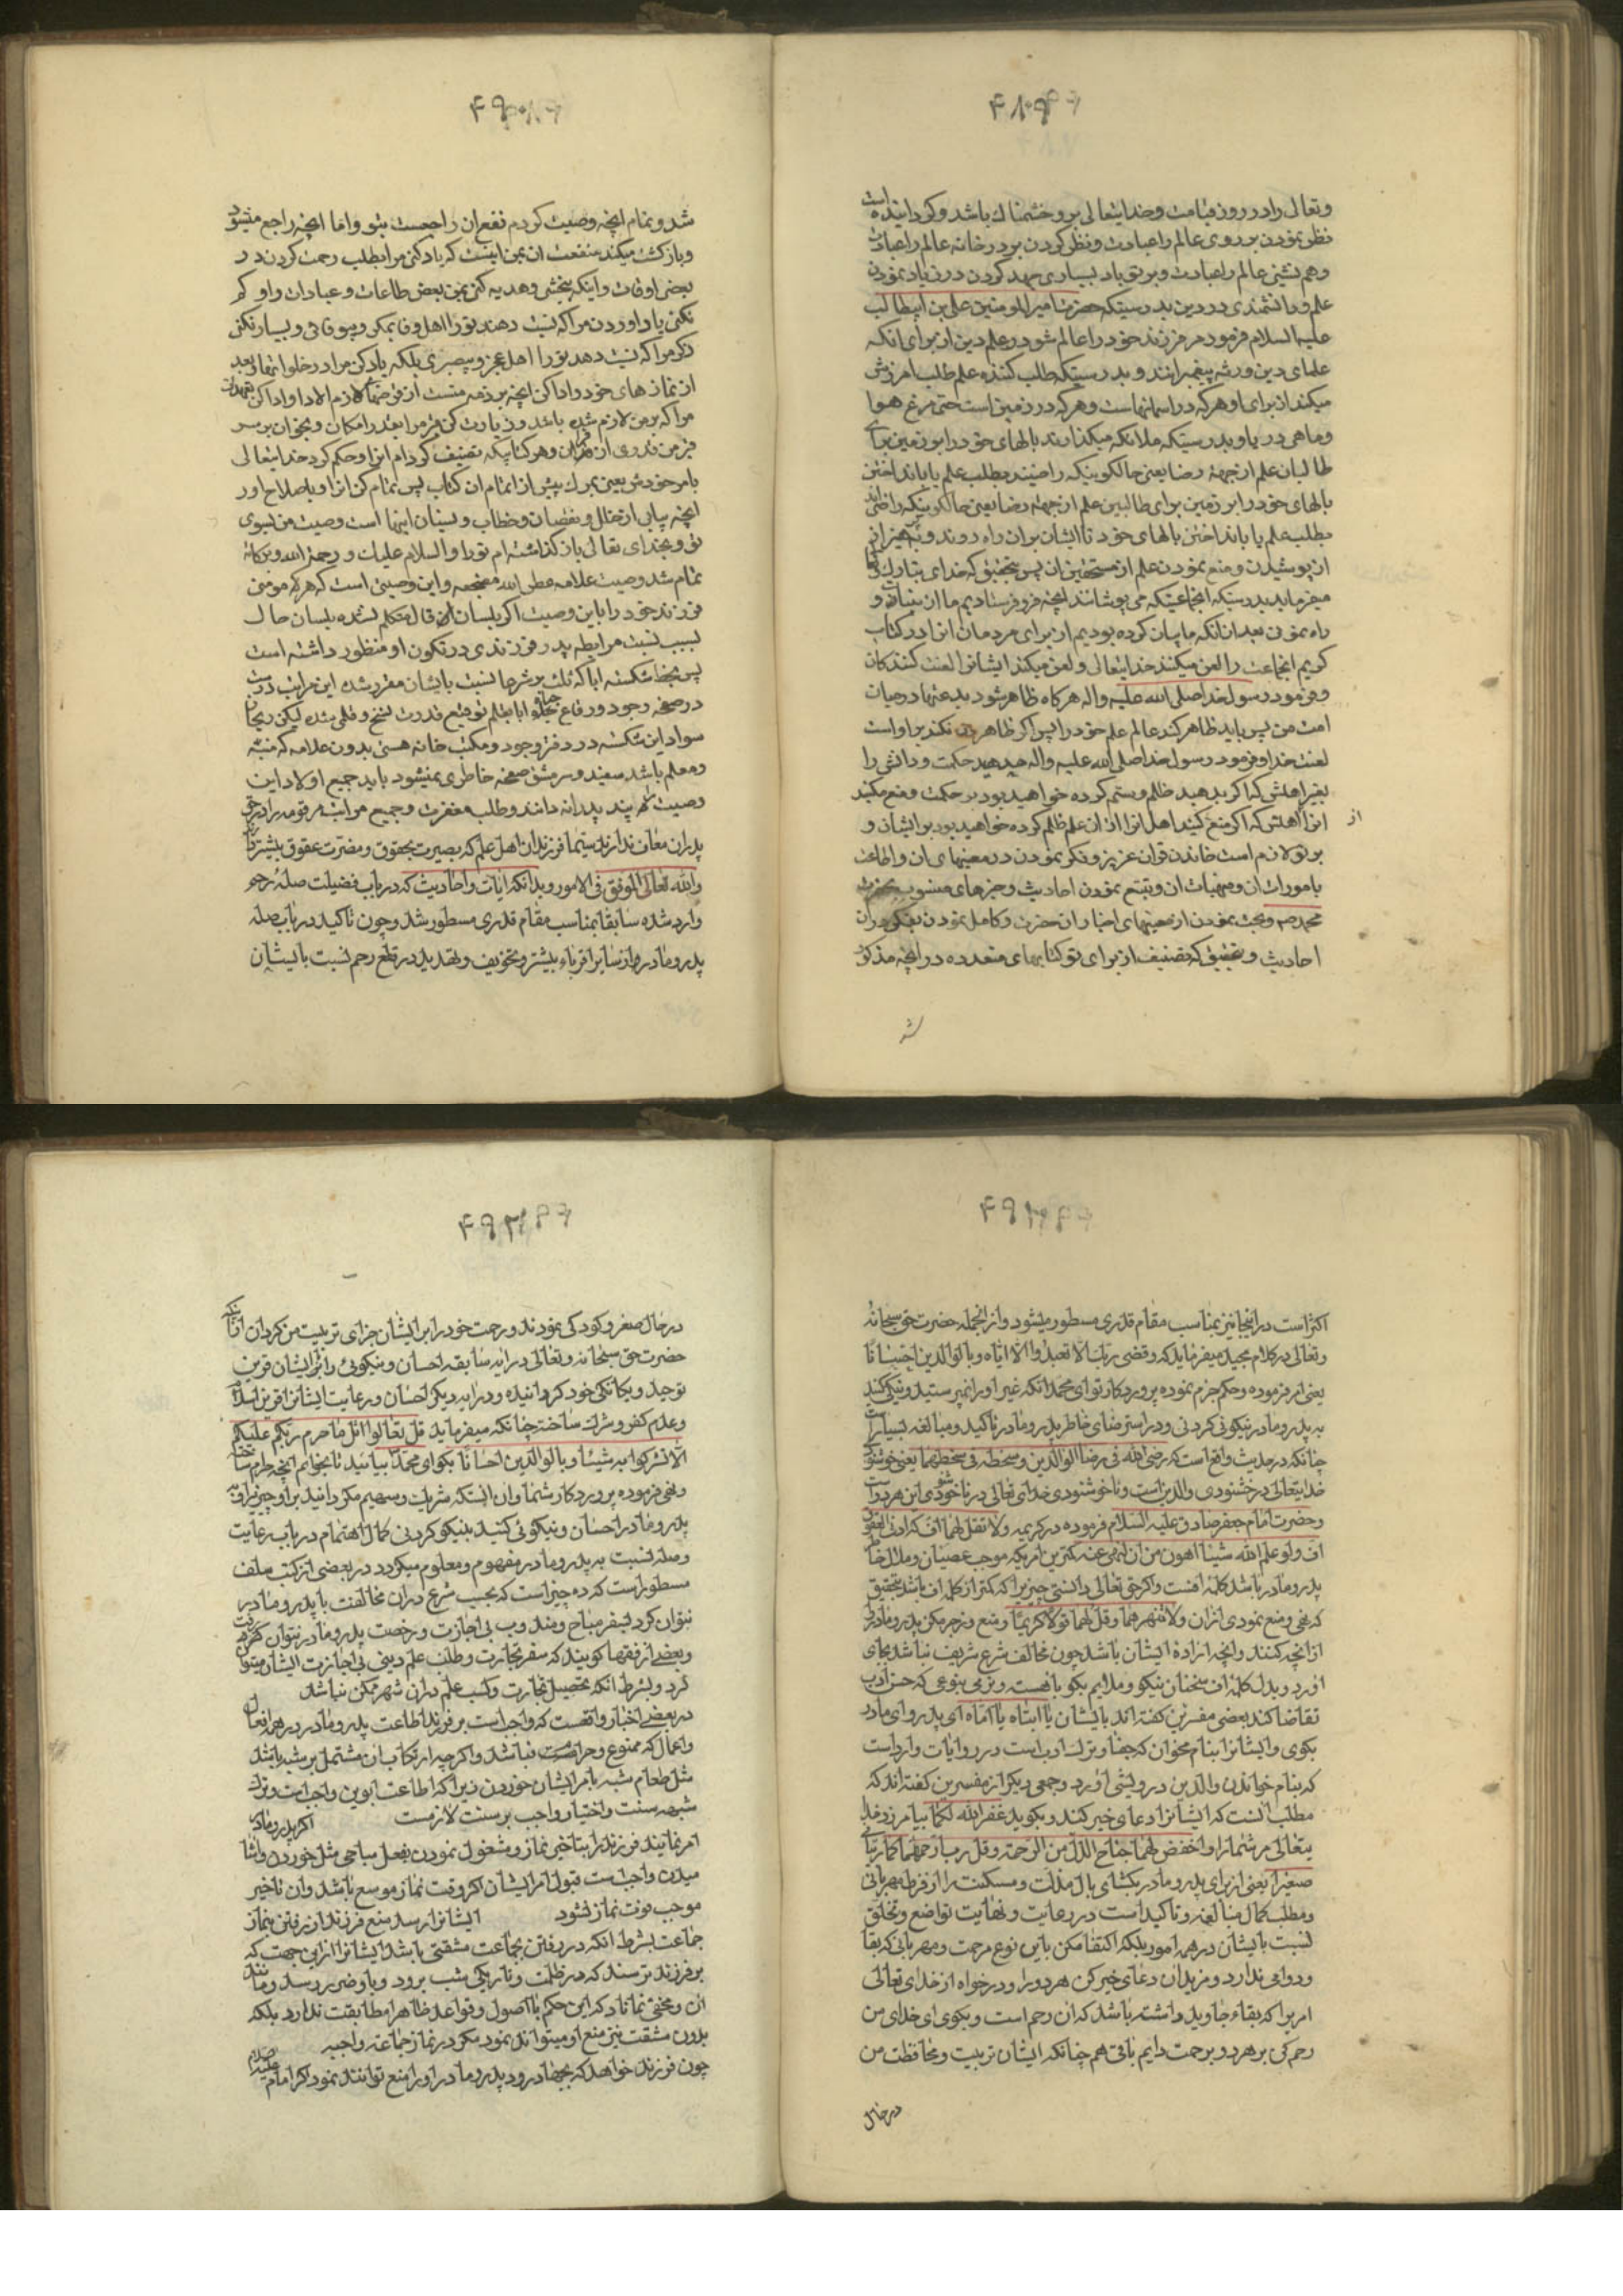 ۴۸۹
وتعالی را در روز قیامت وخدایتعالی برو خشمناك باشد وکردانیده است
نظر نمودن بر روی عالم را عبادت ونظر کردن بر در خانه عالم را عبادت
وهم نشینی عالم را عبادت وبر تو باد بسیاری جهد کردن در زیاد نمودن
علم ودانشمندی در دین بدرستیکه حضرت امیرالمومنین علی بن ابیطالب
علیه السلام فرمود مر فرزند خود را عالم شو در علم دین از برای انکه
علمای دین ورثه پیغمبرانند وبدرستیکه طلب کننده علم طلب امرزش
میکند از برای او هرکه در اسمانهاست وهرکه در زمین است حتی مرغ هوا
وماهی دریا وبدرستیکه ملائکه میکذارند بالهای خود را بر زمین برای
طالبان علم از جهة رضا یعنی حالکونیکه راضیند بطلب علم یا باند اختن
بالهای خود را بر زمین برای طالبین علم از جهة رضا یعنی حالکونیکه راضی اند
بطلب علم یا باند اختن بالهای خود تا ایشان بران راه روند وبپرهیز از
از پوشیدن ومنع نمودن علم از مستحقین ان پس بتحقیق که خدای تبارك وتعالی
میفرماید بدرستیکه انجماعتیکه می پوشانند انچه فرو فرستادیم ما از بینات و
راه نمودن بعد از انکه ما بیان کرده بودیم از برای مردمان انرا در کتاب
کریم انجماعت را لعن میکند خدایتعالی ولعن میکند ایشانرا لعنت کنندکان
وفرمود رسول خدا صلی الله علیه واله هرکاه ظاهر شود بدعتها در میان
امت من پس باید ظاهر کند عالم علم خود را پس اکر ظاهر نکند بر اواست
لعنت خدا وفرمود رسول خدا صلی الله علیه واله مدهید حکمت ودانش را
بغیر اهلش که اکر بدهید ظلم وستم کرده خواهید بود بر حکمت ومنع مکنید
انرا از اهلش که اکر منع کنید اهل انرا از ان علم ظلم کرده خواهید بود بر ایشان و
بر تو لازم است خاندن قران عزیز وفکر نمودن در معنیهای ان واطاعت
بامورات ان ومنهیات ان وتتبع نمودن احادیث وخبرهای منسوب بحضرت
محمد صم وبحث نمودن از معنیهای اخبار ان حضرت وکامل نمودن بفکر در ان
احادیث وبتحقیق که تصنیف از برای تو کتابهای متعدده در انچه مذکور
شد
۴۹۰
شد وتمام انچه وصیت کردم نفع ان راجعست بتو واما انچه راجع میشود
وبازکشت میکند منفعت ان بمن اینست که یاد کنی مرا بطلب رحمت کردن در
بعضی اوقات واینکه ببخشی وهدیه کنی بمن بعض طاعات وعبادات را وکم
نکنی یاد اوردن مرا که نسبت دهند تورا اهل وفا بمکر وبیوفائی وبسیار نکنی
ذکر مرا که نسبت دهد تورا اهل عجز وبیصبری بلکه یاد کن مرا در خلوانها وبعد
از نمازهای خود وادا کن انچه بر ذمه منست از قرضهای لازم الادا وادا کن تعهدات
مرا که بر من لازم شده باشد وزیارت کن قبر مرا بقدر امکان وبخوان بر سر
قبر من قدری از قران وهر کتابیکه تصنیف کرده ام انرا وحکم کرد خدایتعالی
بامر خودش یعنی بمرك پیش از اتمام ان کتاب پس تمام کن انرا وباصلاح اور
انچه بیابی از خلل ونقصان وخطا ونسیان اینها است وصیت من بسوی
تو وبخدای تعالی باز کذاشته ام تورا والسلام علیك ورحمة الله وبرکاته
تمام شد وصیت علامه عطر الله مضجعه واین وصیتی است که هر که مومنی
فرزند خود را باین وصیت اکر بلسان قال متکلم نشده بلسان حال
بسبب نسبت مرابطه پدر فرزندی در تکون او منظور داشته است
پس بخط شکسته ابا که ثلث بر شرعا نسبت بایشان مقرر شده این مراتب درست
در صفحه وجود ورقاع ابا بقلم توقیع قدرت نسخ وقلمی شده لیکن ریحان
سواد این شکسته در دفتر وجود ومکتب خانه هستی بدون علامه که منبه
ومعلم باشد مفید وسرمشق صفحه خاطری نمیشود باید جمیع اولاد این
وصیت را پند پدرانه دانند وطلب مغفرت وجمیع مراتب مرقومه را در حق
پدران معاف ندارند سیما فرزندان اهل علم که بصیرت بحقوق ومضرت عقوق بیشتر
والله تعالی الموفق فی الامور وبدانکه ایات واحادیث که در باب فضیلت صلهٔ رحم
وارد شده سابقا بمناسب مقام قدری مسطور شد وچون تاکید در باب صله
پدر ومادر از سایر اقرباء بیشتر وتخویف وتهدید در قطع رحم نسبت بایشان
۴۹۱
اکثر است در اینجا نیز بمناسب مقام قدری مسطور میشود واز انجمله حضرت حق سبحانه
وتعالی در کلام مجید میفرماید که وقضی ربك الا تعبدوا الا ایاه وبالوالدین احسانا
یعنی امر فرموده وحکم جزم نموده پروردکار تو ای محمد انکه غیر او را نپرستید ونیکی کنید
به پدر ومادر نیکوئی کردنی ودر استرضای خاطر پدر ومادر تاکید ومبالغه بسیار است
چنانکه در حدیث واقع است که رضی الله فی رضا الوالدین وسخطه فی سخطهما یعنی خوشنودی
خدایتعالی در خشنودی والدین است وناخوشنودی خدای تعالی در ناخوشنودی این هردو است
وحضرت امام جعفر صادق علیه السلام فرموده در کریمه ولا تقل لهما اف که ادنی العقوق
اف ولو علم الله شیئا اهون من ان لنهی عنه کمترین امریکه موجب عصیان وملال خاطر
پدر ومادر باشد کلمهٔ افست واکر حق تعالی دانستی چیزی را که کمتر از کلمه اف باشد بتحقیق
که نهی ومنع نمودی ازان ولا تنهرهما وقل لهما قولا کریما ومنع وزجر مکن پدر ومادر را
از انچه کنند وانچه ارادهٔ ایشان باشد چون مخالف شرع شریف نباشد بجای
اور وبدل کلمهٔ اف سخنان نیکو وملایم بکو باهسته ونرمی بنوعی که حسن ادب
تقاضا کند بعضی مفسرین کفته اند بایشان یا ابتاه یا اماه ای پدر وای مادر
بکوی وایشانرا بنام مخوان که جفا وترك ادب است در روایات وارد است
که بنام خواندن والدین درویشی آورد وجمعی دیکر از مفسرین کفته اند که
مطلب انست که ایشانرا دعای خیر کند وبکوید غفر الله لکما بیامرزد خدا
یتعالی مر شما را واخفض لهما جناح الذل من الرحمة وقل رب ارحمهما کما ربیانی
صغیرا یعنی از برای پدر ومادر بکشای بال مذلت ومسکنت را از فرط مهربانی
ومطلب کمال مبالغه وتاکید است در رعایت ونهایت تواضع وتخلق
نسبت بایشان در همه امور بلکه اکتفا مکن باین نوع مرحمت ومهربانی که بقا
ودوامی ندارد ومزید ان دعای خیر کن هردو را ودرخواه از خدای تعالی
امریرا که بقاء جاوید داشته باشد که ان رحم است وبکوی ای خدای من
رحم کن بر هردو برحمت دایم باقی هم چنانکه ایشان تربیت ومحافظت من
در حال
۴۹۲
در حال صغر وکودکی نمودند ورحمت خود را بر ایشان جزای تربیت من کردان از انکه
حضرت حق سبحانه وتعالی در ایه سابقه احسان ونیکوئی را بایشان قرین
توحید ویکانکی خود کردانیده ودر ایه دیکر احسان ورعایت ایشانرا قرین اسلام
وعدم کفر وشرك ساخته چنانکه میفرماید قل تعالوا اتل ما حرم ربکم علیکم
الا تشرکوا به شیئا وبالوالدین احسانا بکو ای محمد بیائید تا بخوانم انچه حرم ساخته
ونهی فرموده پروردکار شما وان انستکه شریك وسهیم مکردانید براو چیزی را وبه
پدر ومادر احسان ونیکوئی کنید نیکو کردنی کمال اهتمام در باب رعایت
وصله نسبت به پدر ومادر مفهوم ومعلوم میکردد در بعضی از کتب سلف
مسطور است که ده چیز است که بحسب شرع دران مخالفت با پدر ومادر
نتوان کرد سفر مباح ومندوب بی اجازت ورخصت پدر ومادر نتوان کرد
وبعضی از فقها کویند که سفر تجارت وطلب علم دینی بی اجازت ایشان میتوان
کرد وبشرط انکه تحصیل تجارت وکسب علم دران شهر ممکن نباشد
در بعضی اخبار واقعست که واجب است بر فرزند اطاعت پدر ومادر در هر افعال
واعمال که ممنوع وحرام نباشد واکر چه ارتکاب ان مشتمل بر شبه باشد
مثل طعام شبه بامر ایشان خوردن زیرا که اطاعت ابوین واجب است وترك
شبهه سنت واختیار واجب بر سنت لازمست اکر پدر ومادر
امر نمایند فرزند را بتاخیر نماز ومشغول نمودن بفعل مباحی مثل خوردن واشا
میدن واجبست قبول امر ایشان اکر وقت نماز موسع باشد وان تاخیر
موجب فوت نماز نشود ایشانرا رسد منع فرزند از رفتن بنماز
جماعت بشرط انکه در رفتن بجماعت مشقتی باشد ایشانرا ازین جهت که
بر فرزند ترسند که در ظلمت وتاریکی شب برود وباو ضرر رسد ومانند
ان ومخفی نماناد که این حکم با اصول وقواعد ظاهرا مطابقت ندارد بلکه
بدون مشقت نیز منع او میتوانند نمود مکر در نماز جماعه واجبه
چون فرزند خواهد که بجهاد رود پدر ومادر او را منع توانند نمود اکر امام علیه السلام